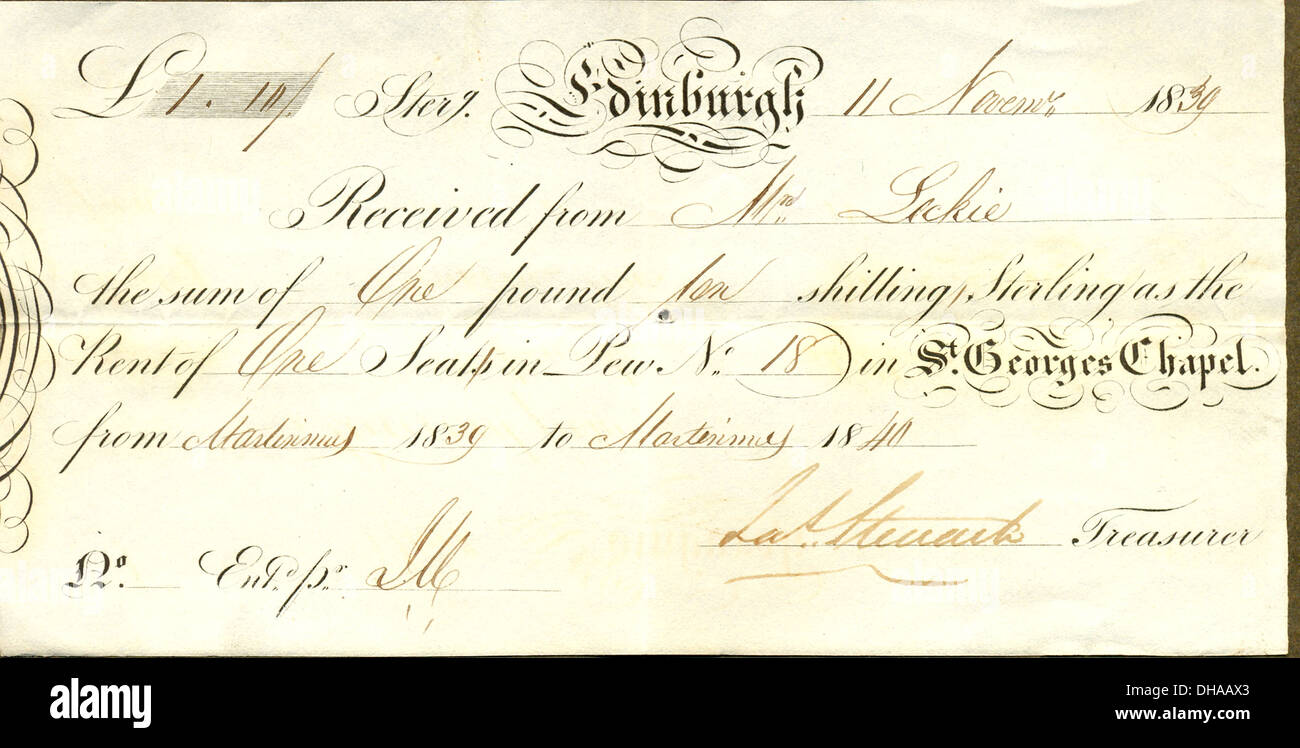 £1.10/. Sterg. Edinburgh 11 Novemr. 1839
Received from Leckie
the sum of One pound ten shillings Sterling as the
Rent of One Seats in Pew No. 18 in St. Georges Chapel.
from Martinmas 1839 to Martinmas 1840
Jas. Steuart Treasurer
No. Entd. pr.
alamy
Image ID: DHAAX3
www.alamy.com